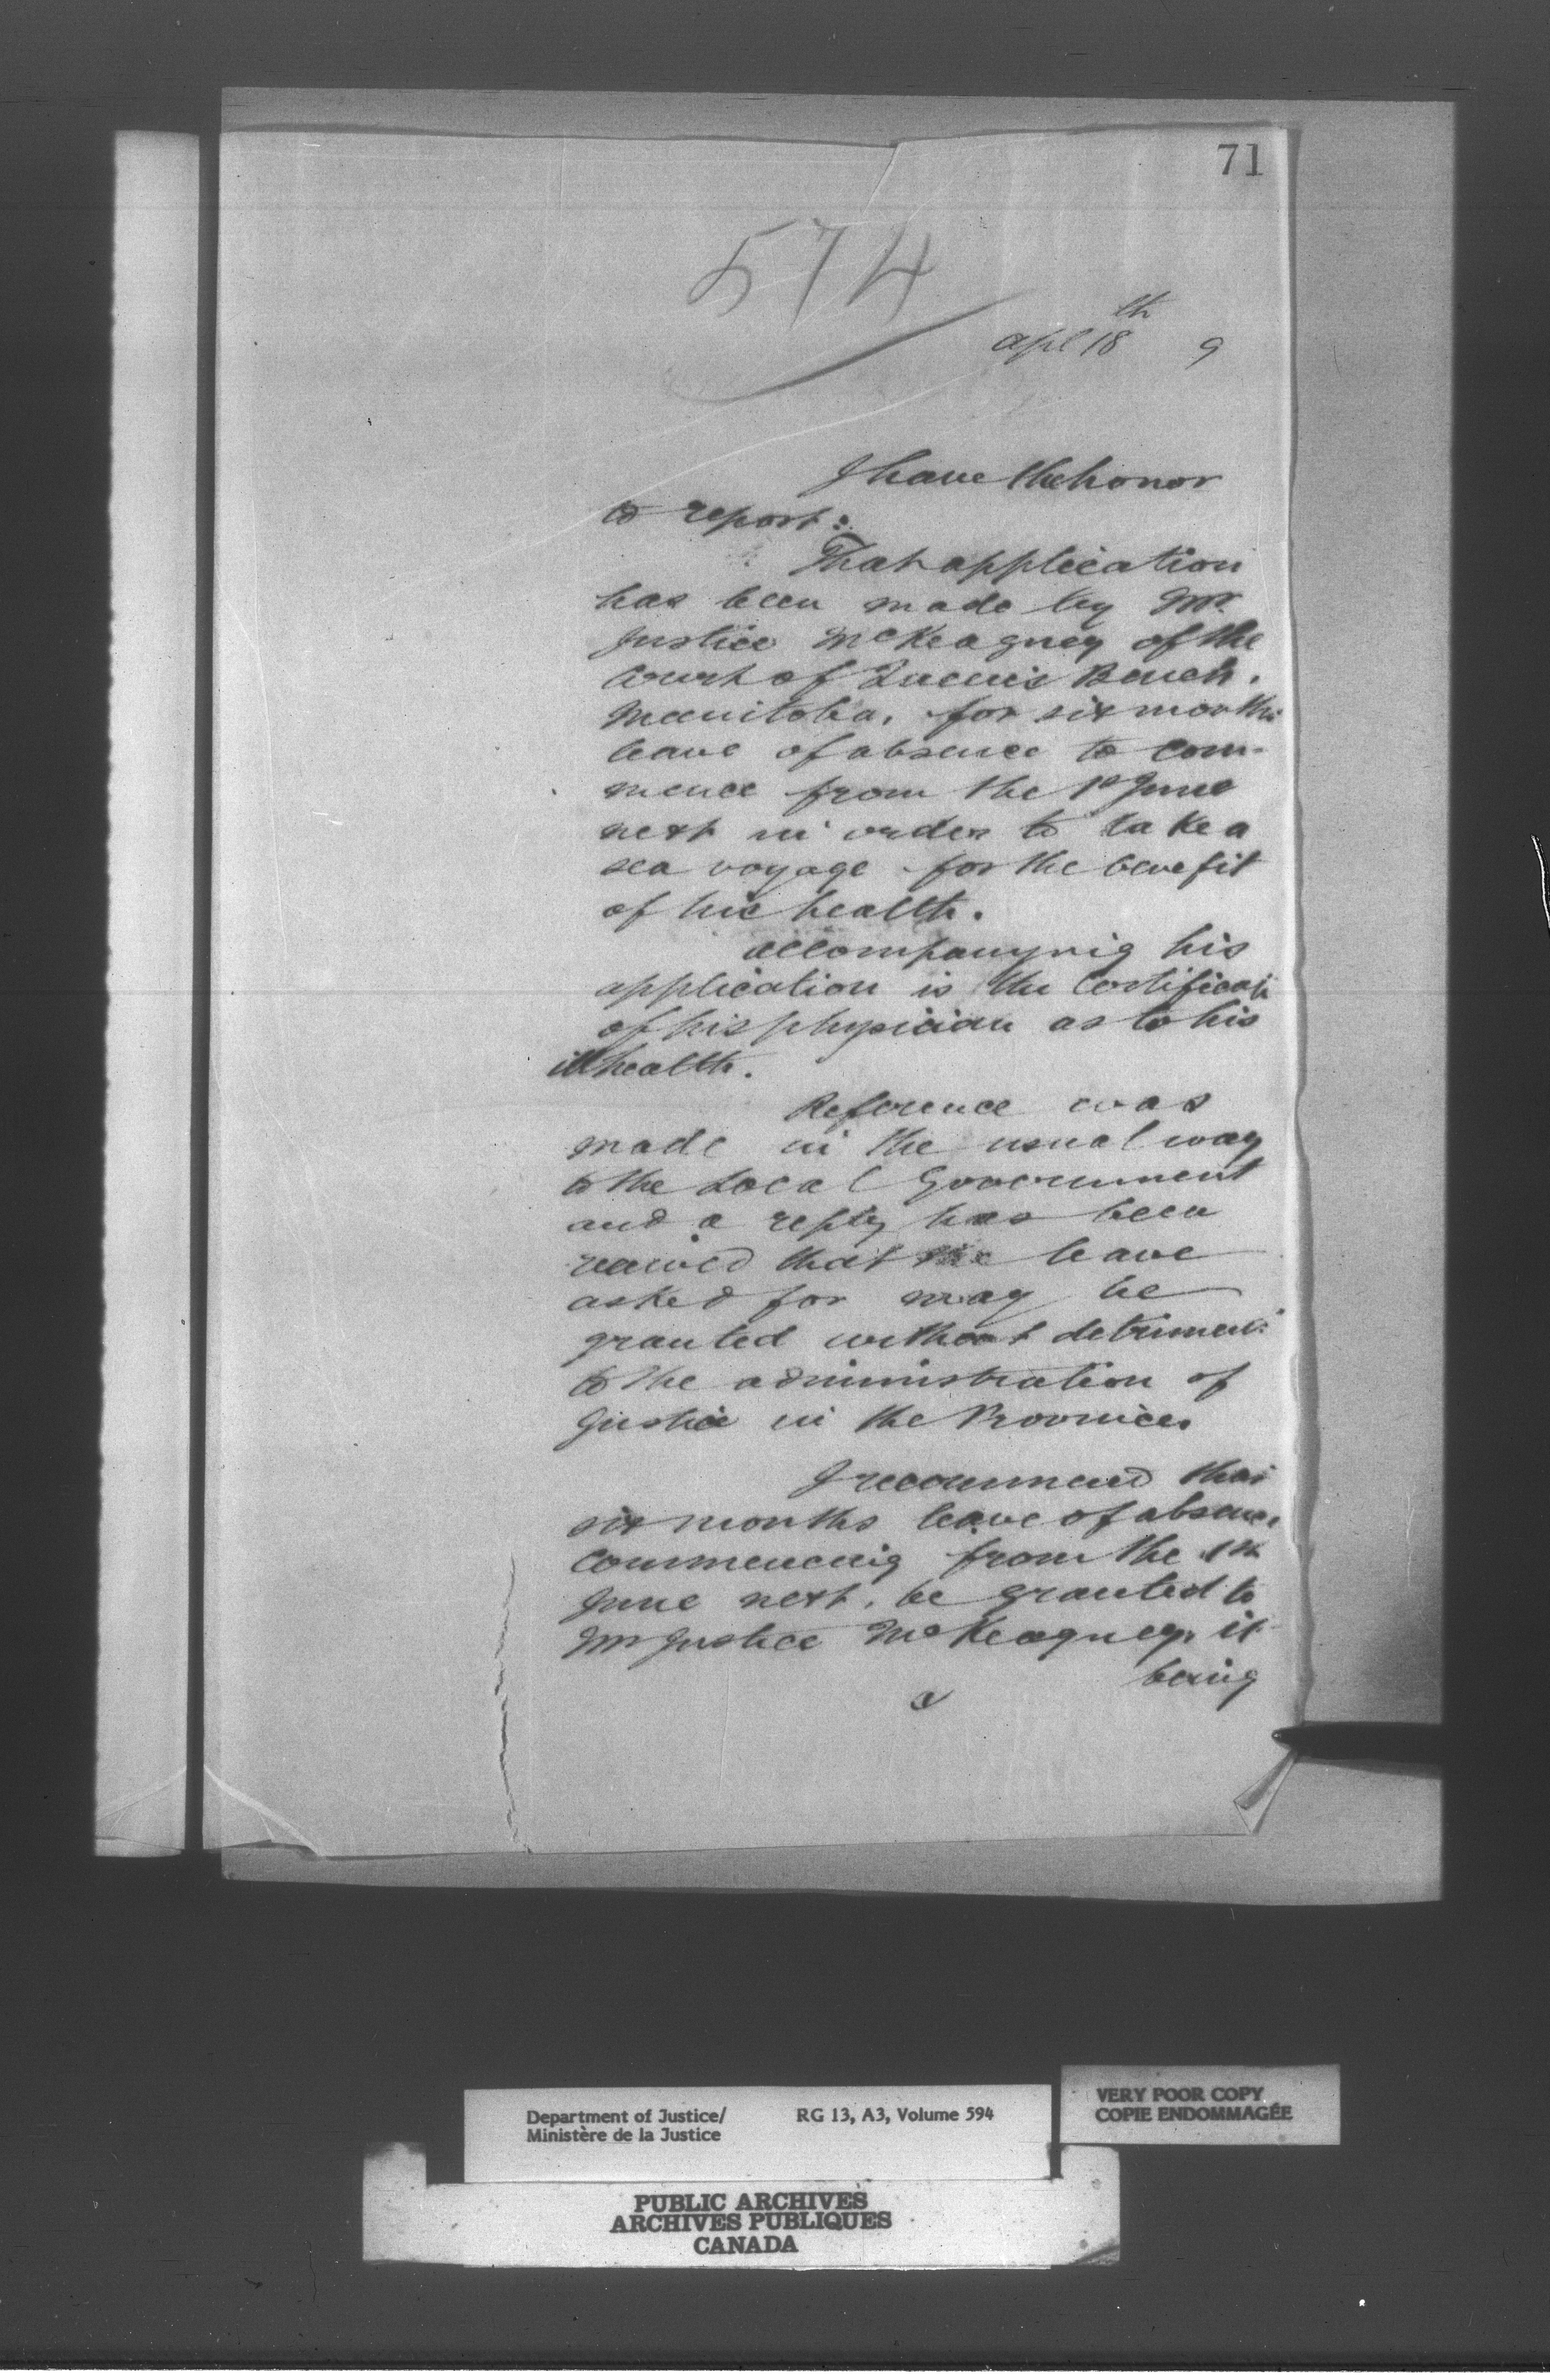 71
574
Apl 18th 9
I have the honor
to report:
That application
has been made by Mr.
Justice McKeagney of the
Court of Queen's Bench.
Manitoba, for six months
leave of absence to com-
mence from the 1st June
next in order to take a
sea voyage for the benefit
of his health.
Accompanying his
application is the Certificate
of his physician as to his
ill health.
Reference was
made in the usual way
to the Local Government
and a reply has been
received that the leave
asked for may be
granted without detriment
to the administration of
Justice in the Province.
I recommend that
six months leave of absence
commencing from the 1st
June next, be granted to
Mr Justice McKeagney, it
being
Department of Justice/ RG 13, A3, Volume 594
Ministère de la Justice
VERY POOR COPY
COPIE ENDOMMAGÉE
PUBLIC ARCHIVES
ARCHIVES PUBLIQUES
CANADA